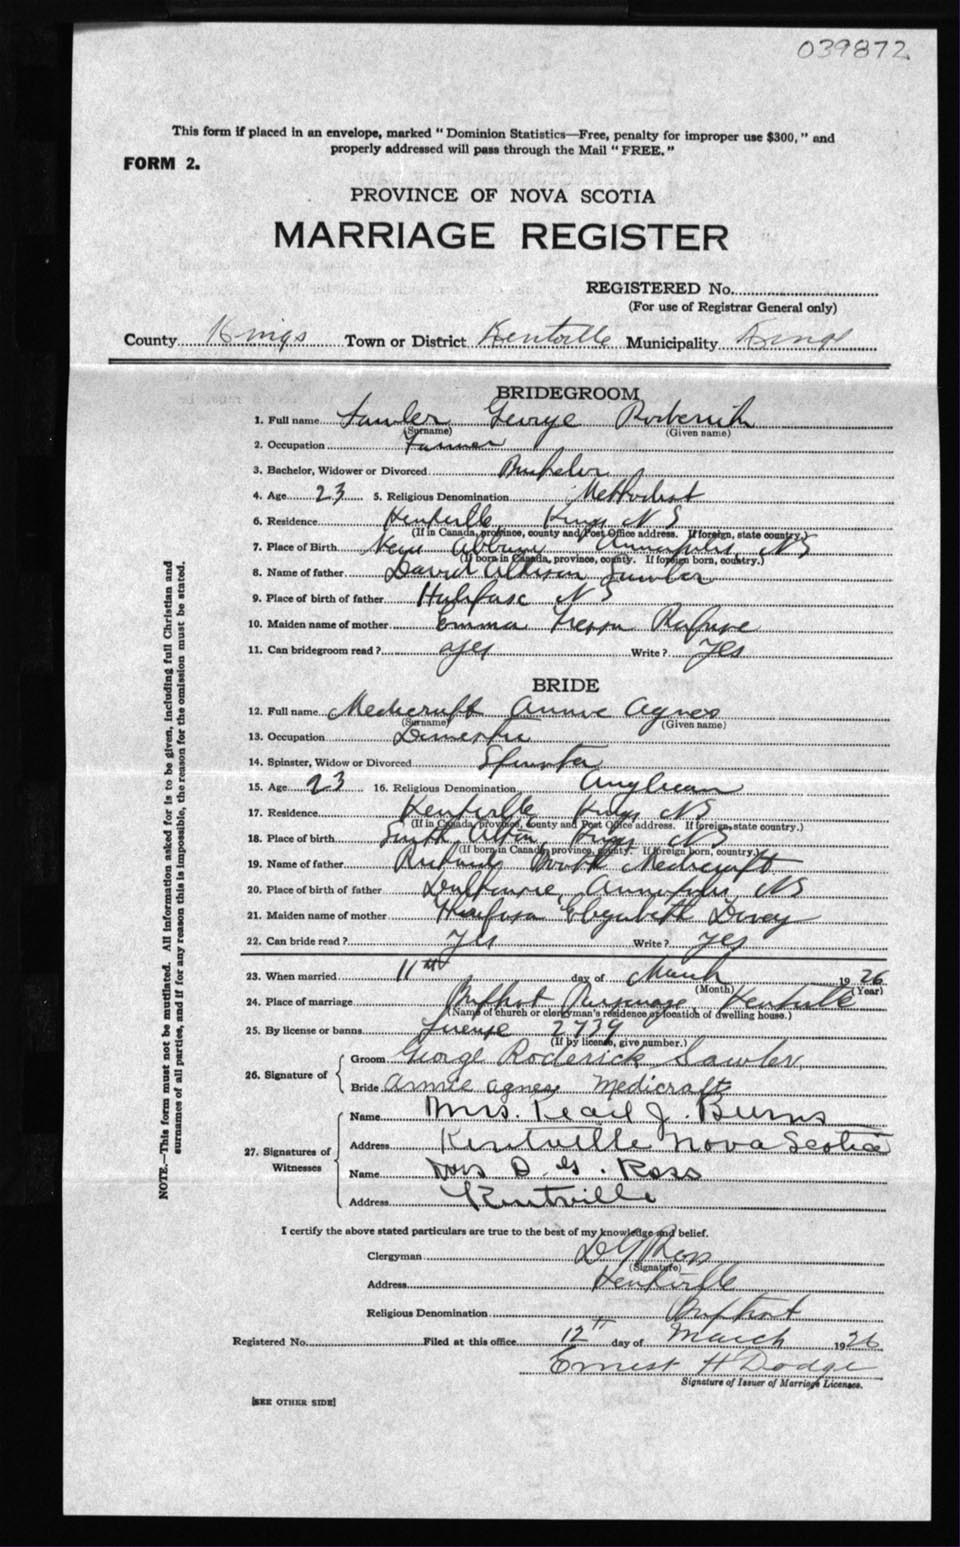 039872
This form if placed in an envelope, marked " Dominion Statistics—Free, penalty for improper use $300, " and
properly addressed will pass through the Mail " FREE. "
FORM 2.
PROVINCE OF NOVA SCOTIA
MARRIAGE REGISTER
REGISTERED No.
(For use of Registrar General only)
County Kings Town or District Kentville Municipality Kings
BRIDEGROOM
1. Full name Sawler George Roderick
(Surname) (Given name)
2. Occupation Farmer
3. Bachelor, Widower or Divorced Bachelor
4. Age 23 5. Religious Denomination Methodist
6. Residence Kentville Kings N S
(If in Canada, province, county and Post Office address. If foreign, state country.)
7. Place of Birth New Albany Annapolis NS
(If born in Canada, province, county. If foreign born, country.)
8. Name of father David Sawler
9. Place of birth of father Halifax N S
10. Maiden name of mother Emma
11. Can bridegroom read? yes Write? yes
BRIDE
12. Full name Medicraft Annie Agnes
(Surname) (Given name)
13. Occupation Domestic
14. Spinster, Widow or Divorced Spinster
15. Age 23 16. Religious Denomination Anglican
17. Residence Kentville Kings NS
(If in Canada, province, county and Post Office address. If foreign, state country.)
18. Place of birth South Alton, Kings NS
(If born in Canada, province, county. If foreign born, country.)
19. Name of father Medicraft
20. Place of birth of father Dalhousie, Annapolis NS
21. Maiden name of mother Elizabeth
22. Can bride read? yes Write? yes
23. When married 11th day of March 1926
(Month) (Year)
24. Place of marriage Baptist Parsonage Kentville
(Name of church or clergyman's residence or location of dwelling house.)
25. By license or banns License 2739
(If by license, give number.)
26. Signature of
Groom George Roderick Sawler
Bride Annie Agnes Medicraft
27. Signatures of Witnesses
Name Mrs. Pearl J. Burns
Address Kentville Nova Scotia
Name Mrs D. G. Ross
Address Kentville
I certify the above stated particulars are true to the best of my knowledge and belief.
Clergyman D G Ross
(Signature)
Address Kentville
Religious Denomination Baptist
Registered No. Filed at this office 12th day of March 1926
Ernest H Dodge
Signature of Issuer of Marriage Licenses.
[SEE OTHER SIDE]
NOTE.—This form must not be mutilated. All information asked for is to be given, including full Christian and
surnames of all parties, and if for any reason this is impossible, the reason for the omission must be stated.